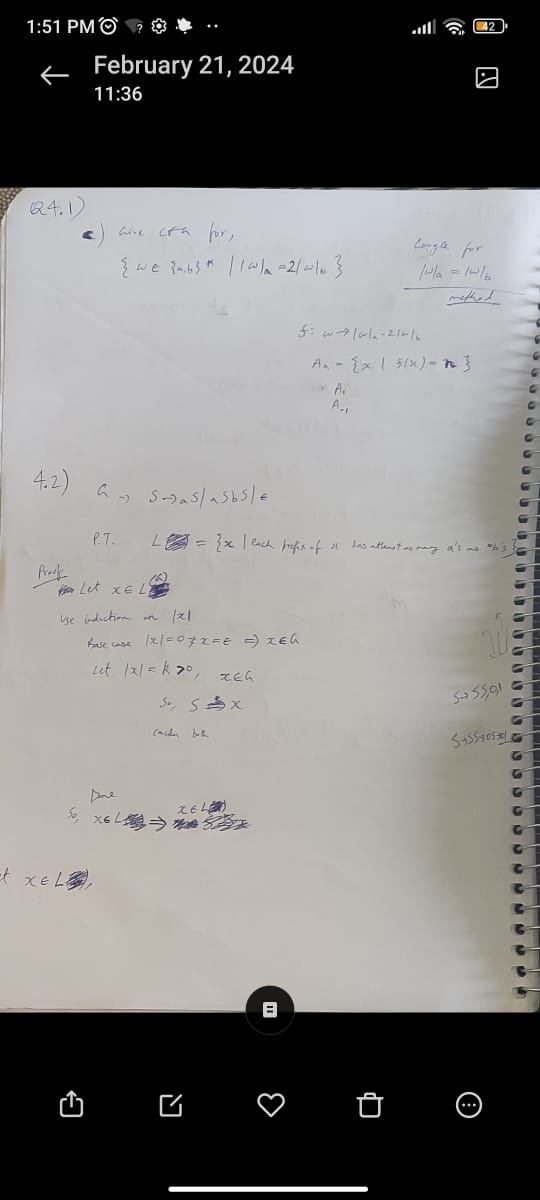 1:51 PM
42
February 21, 2024
11:36
Q4.1)
c) Give CFG for,
{ w ∈ {a,b}* | |w|a = 2|w|b }
Google for
|w|a = |w|b
method
f: w → |w|a - 2|w|b
An = {x | f(x) = n }
A1
A-1
4.2) G → S → aS | aSbS | ε
P.T. L = {x | each prefix of x has atleast as many a's as b's }
Proof
Let x ∈ L(G)
Use induction on |x|
Base case |x| = 0 → x = ε ⇒ x ∈ G
Let |x| = k > 0, x ∈ G
So, S ⇒ x
Done
So, x ∈ L ⇒ x ∈ L
x ∈ L ,